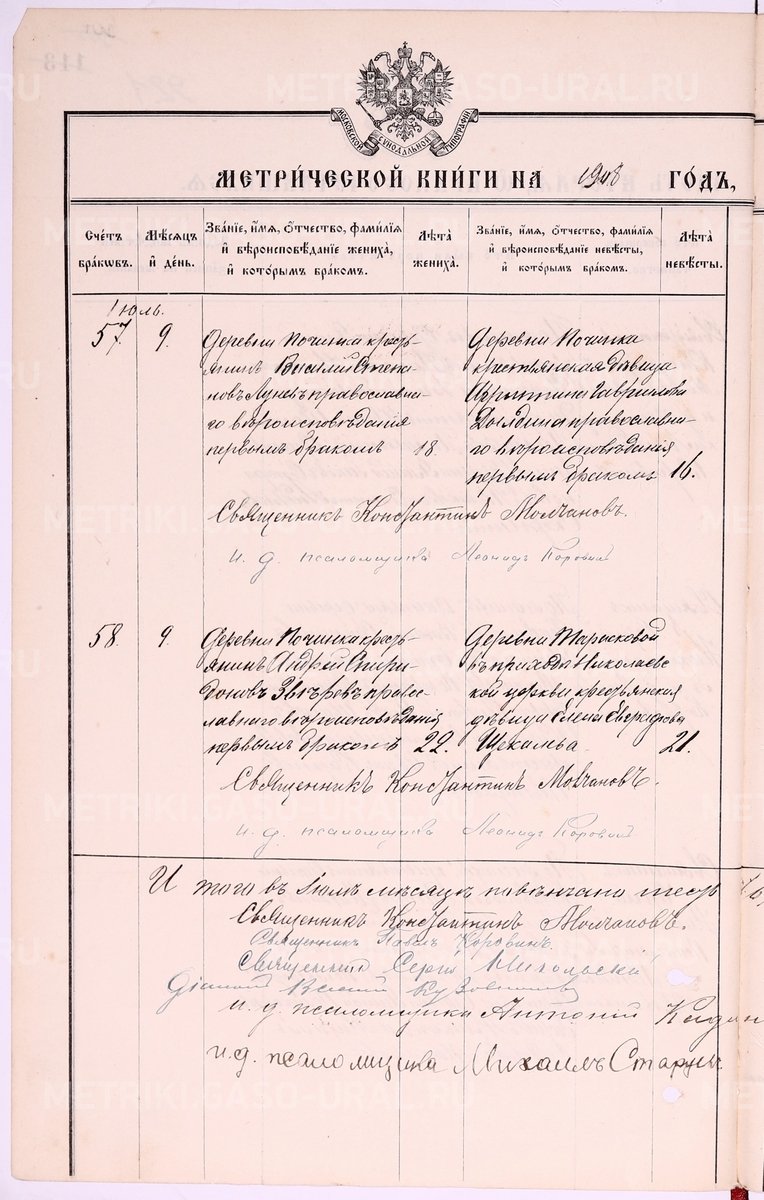 МОСКОВСКОЙ СѴНОДАЛЬНОЙ ТИПОГРАФІИ
МЕТРИ́ЧЕСКОЙ КНИ́ГИ НА 1908 ГО́ДЪ,
Сче́тъ бра́кѡвъ.
Мѣ́сяцъ и҆ де́нь.
Зва́нїе, и҆́мѧ, ѻ҆́тчество, фами́лїѧ и҆ вѣроисповѣ́данїе жениха̀, и҆ кото́рымъ бра́комъ.
Лѣ́та жениха̀.
Зва́нїе, и҆́мѧ, ѻ҆́тчество, фами́лїѧ и҆ вѣроисповѣ́данїе невѣ́сты, и҆ кото́рымъ бра́комъ.
Лѣ́та невѣ́сты.
Іюль.
57. 9.
Деревни Починка кресть-
янинъ Василій Степа-
новъ Луневъ православна-
го вѣроисповѣданія
первымъ бракомъ 18.
Деревни Починка
крестьянская дѣвица
Гаврилова
православна-
го вѣроисповѣданія
первымъ бракомъ 16.
Священникъ Константинъ Молчановъ.
и. д. псаломщика Леонидъ Коровин
58. 9.
Деревни Починка кресть-
янинъ Андрей Спири-
доновъ Звѣревъ право-
славнаго вѣроисповѣданія
первымъ бракомъ 22.
Деревни Тарасковой
въ приходѣ Николаевс-
кой церкви крестьянская
дѣвица Елена
21.
Священникъ Константинъ Молчановъ.
и. д. псаломщика Леонидъ Коровин
Итого въ Іюлѣ мѣсяцѣ повѣнчано шесть
Священникъ Константинъ Молчановъ.
Священникъ Павелъ Коровинъ.
Священникъ Сергій Никольскій
Діаконъ
и. д. псаломщика Антоній
и. д. псаломщика Михаилъ
METRIKI.GASO-URAL.RU